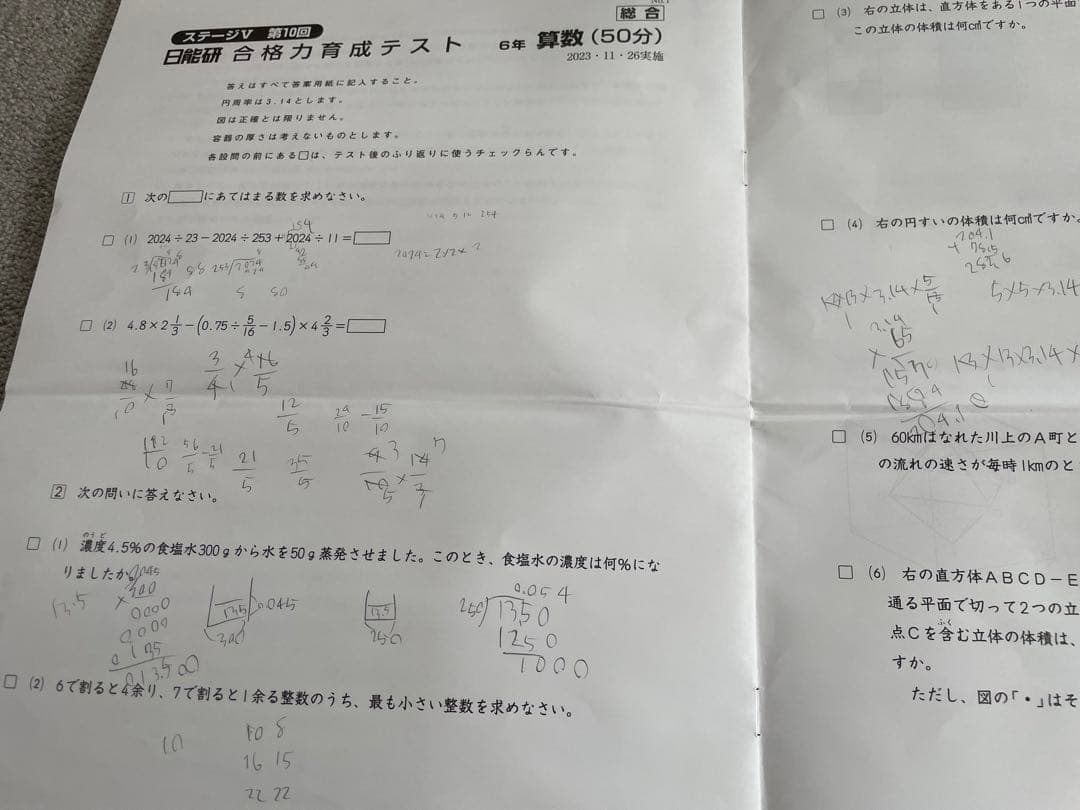 ステージⅤ 第10回
日能研 合格力育成テスト 6年 算数(50分)
総合
2023・11・26実施
答えはすべて答案用紙に記入すること。
円周率は3.14とします。
図は正確とは限りません。
容器の厚さは考えないものとします。
各設問の前にある□は、テスト後のふり返りに使うチェックらんです。
1 次の□にあてはまる数を求めなさい。
□ (1) 2024÷23－2024÷253＋2024÷11＝□
2024=2×2×2
184
184 8 80
□ (2) 4.8×2 1/3－(0.75÷5/16－1.5)×4 2/3＝□
16
12/5 24/10 －15/10
21/5 35/5
2 次の問いに答えなさい。
□ (1) 濃度4.5%の食塩水300gから水を50g蒸発させました。このとき、食塩水の濃度は何%にな
のうど
りましたか。
13.5
×300
0000
0000
0135
013.500
13.5 0.045
300
13.5
250
0.054
250 1350
1250
1000
□ (2) 6で割ると4余り、7で割ると1余る整数のうち、最も小さい整数を求めなさい。
10
10 8
16 15
22 22
□ (3) 右の立体は、直方体をある1つの平面
この立体の体積は何cm³ですか。
□ (4) 右の円すいの体積は何cm³ですか
204.1
+78.5
282.6
5×5×3.14
3.14
×65
1570
1884
204.10
□ (5) 60kmはなれた川上のA町と
の流れの速さが毎時1kmのと
□ (6) 右の直方体ABCD－E
通る平面で切って2つの立
点Cを含む立体の体積は、
ふく
すか。
ただし、図の「・」はそ